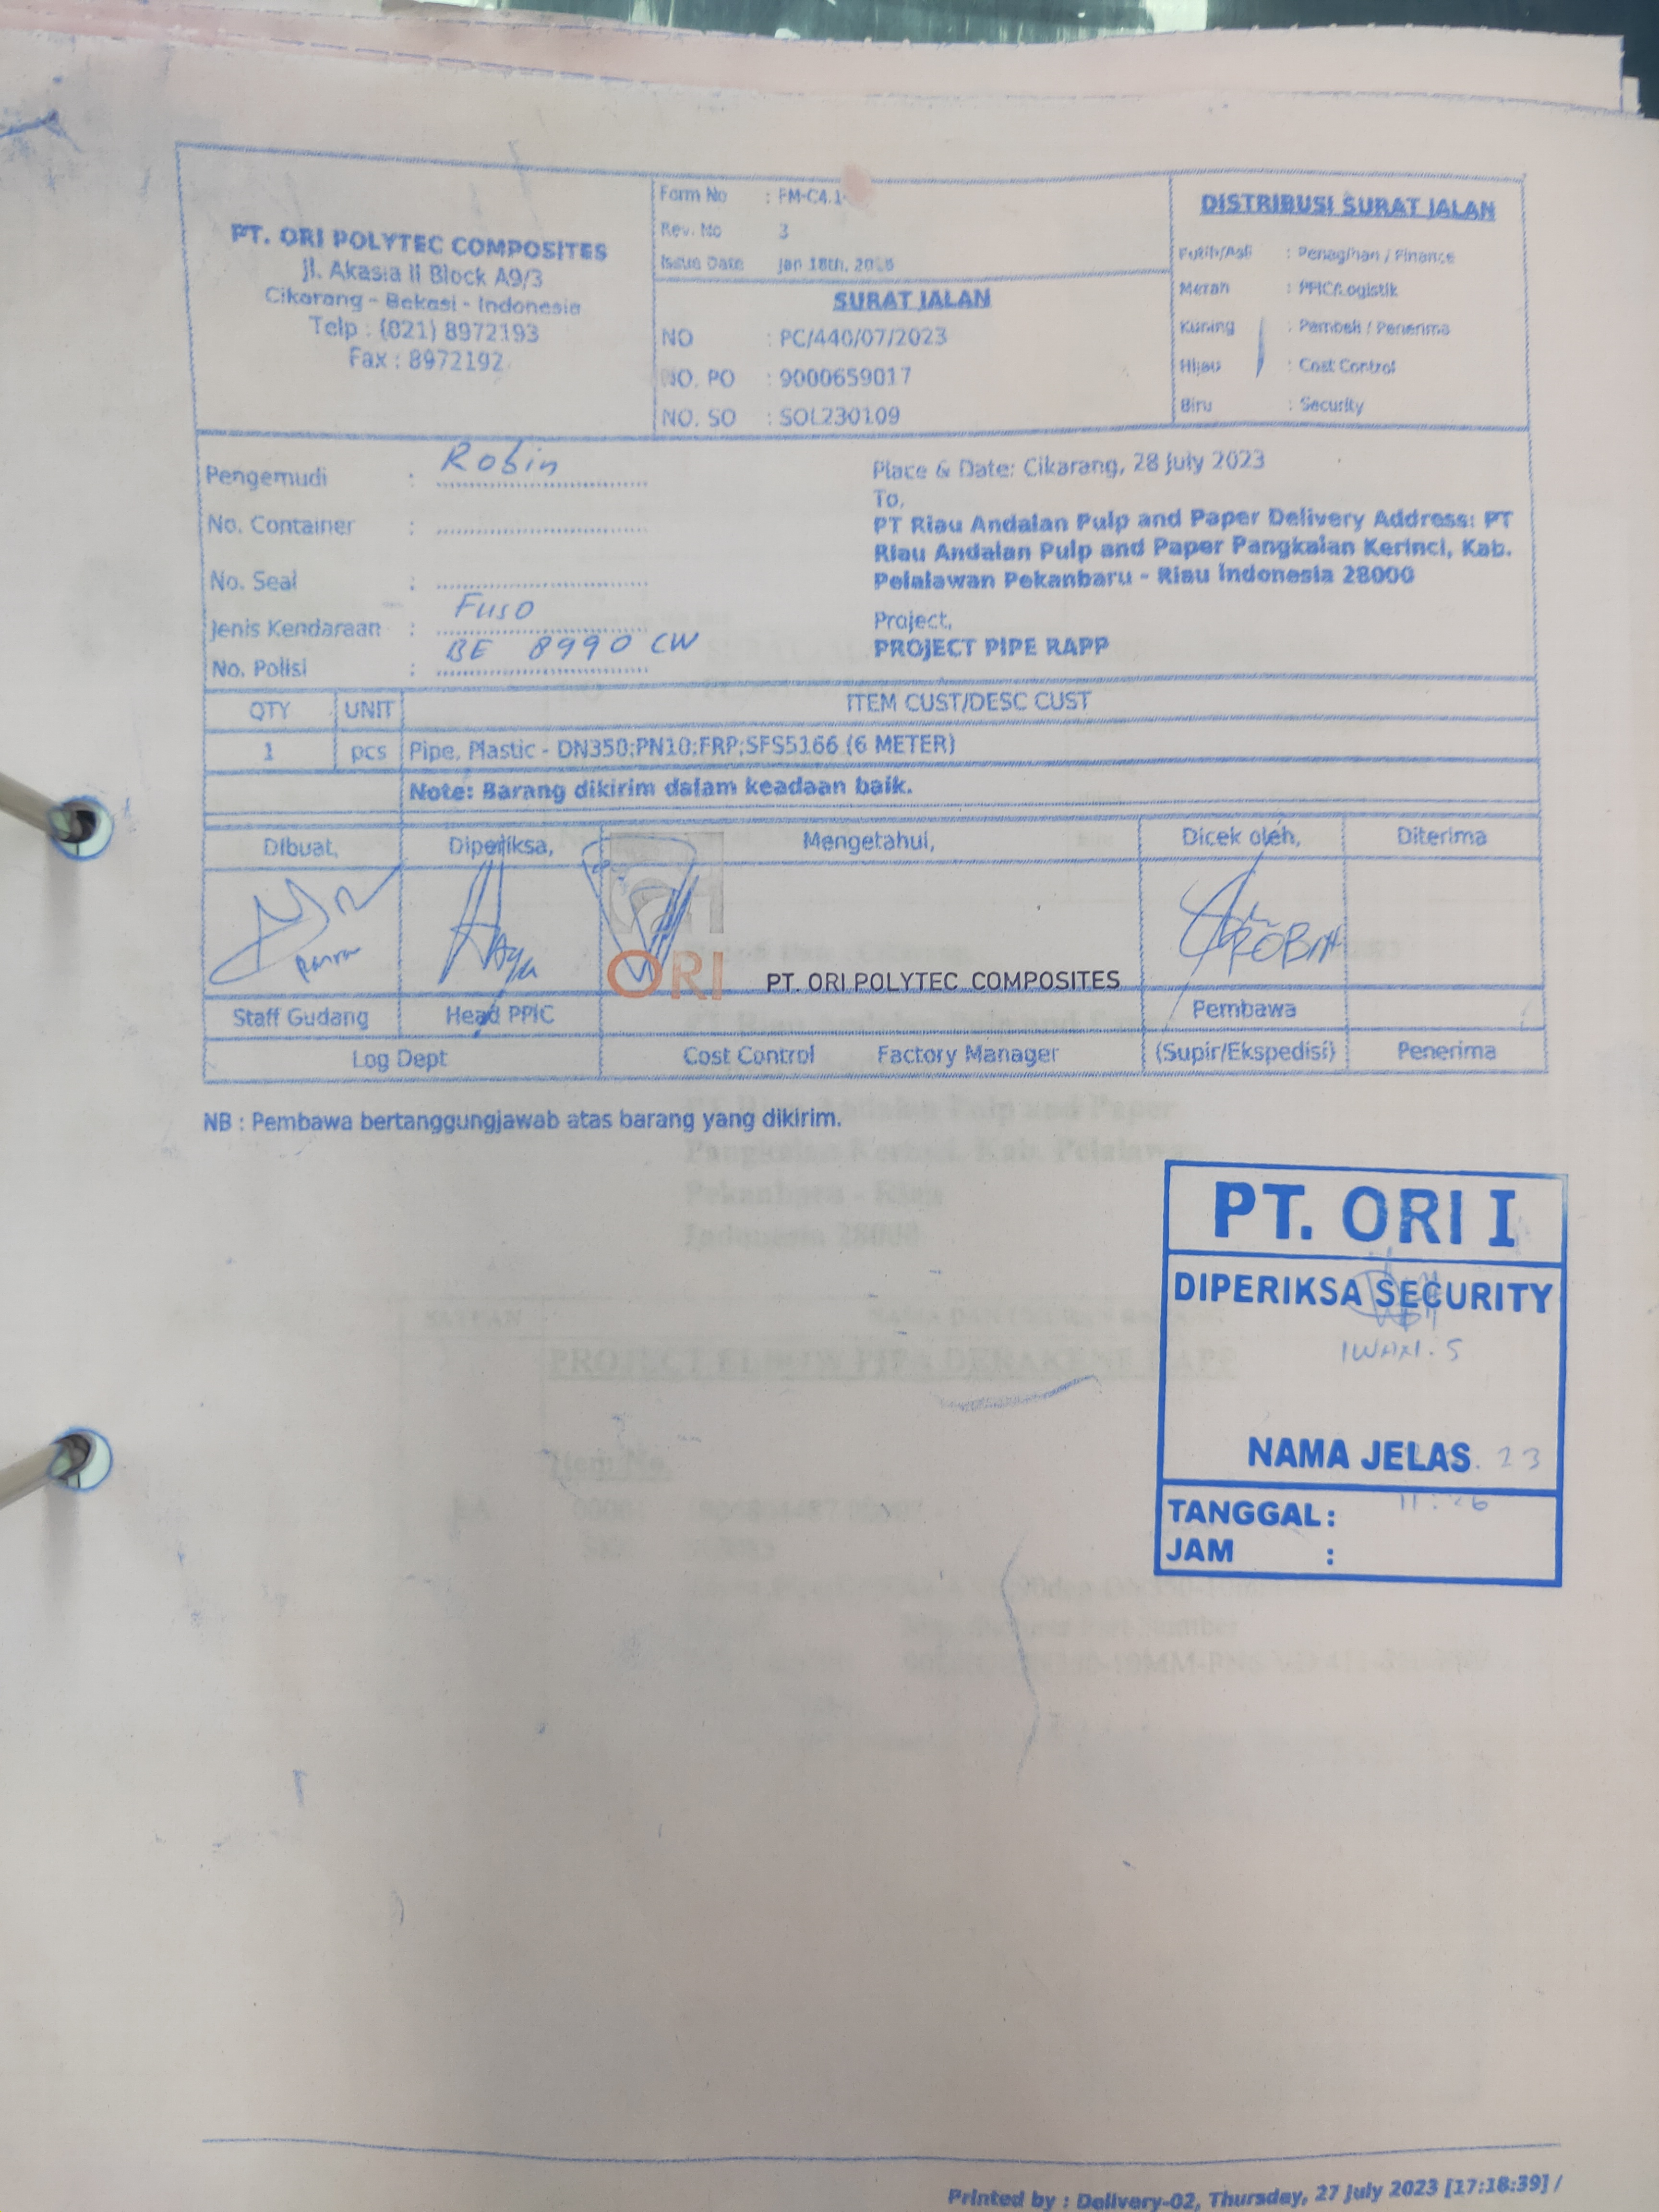 PT. ORI POLYTEC COMPOSITES
Jl. Akasia II Block A9/3
Cikarang - Bekasi - Indonesia
Telp : (021) 8972193
Fax : 8972192
Form No : FM-C4.1-
Rev. No 3
Issue Date Jan 18th,
SURAT JALAN
NO : PC/440/07/2023
NO. PO : 9000659017
NO. SO : SOL230109
DISTRIBUSI SURAT JALAN
Putih/Asli : Penagihan / Finance
Merah : PPIC/Logistik
Kuning : Pembeli / Penerima
Hijau : Cost Control
Biru : Security
Pengemudi : Robin
No. Container :
No. Seal :
Jenis Kendaraan : Fuso
No. Polisi : BE 8990 CW
Place & Date: Cikarang, 28 July 2023
To,
PT Riau Andalan Pulp and Paper Delivery Address: PT
Riau Andalan Pulp and Paper Pangkalan Kerinci, Kab.
Pelalawan Pekanbaru - Riau Indonesia 28000
Project,
PROJECT PIPE RAPP
QTY UNIT ITEM CUST/DESC CUST
1 pcs Pipe, Plastic - DN350;PN10;FRP;SFS5166 (6 METER)
Note: Barang dikirim dalam keadaan baik.
Dibuat, Diperiksa, Mengetahui, Dicek oleh, Diterima
ROBIN
ORI PT. ORI POLYTEC COMPOSITES
Staff Gudang Head PPIC Pembawa
Log Dept Cost Control Factory Manager (Supir/Ekspedisi) Penerima
NB : Pembawa bertanggungjawab atas barang yang dikirim.
PT. ORI I
DIPERIKSA SECURITY
IWAN. S
NAMA JELAS . 23
TANGGAL :
JAM :
Printed by : Delivery-02, Thursday, 27 July 2023 [17:18:39] /